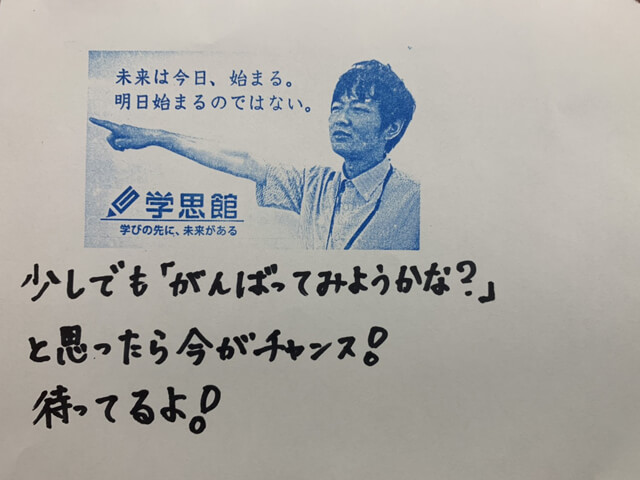 未来は今日、始まる。
明日始まるのではない。
学思館
学びの先に、未来がある
少しでも「がんばってみようかな?」
と思ったら今がチャンス!
待ってるよ!